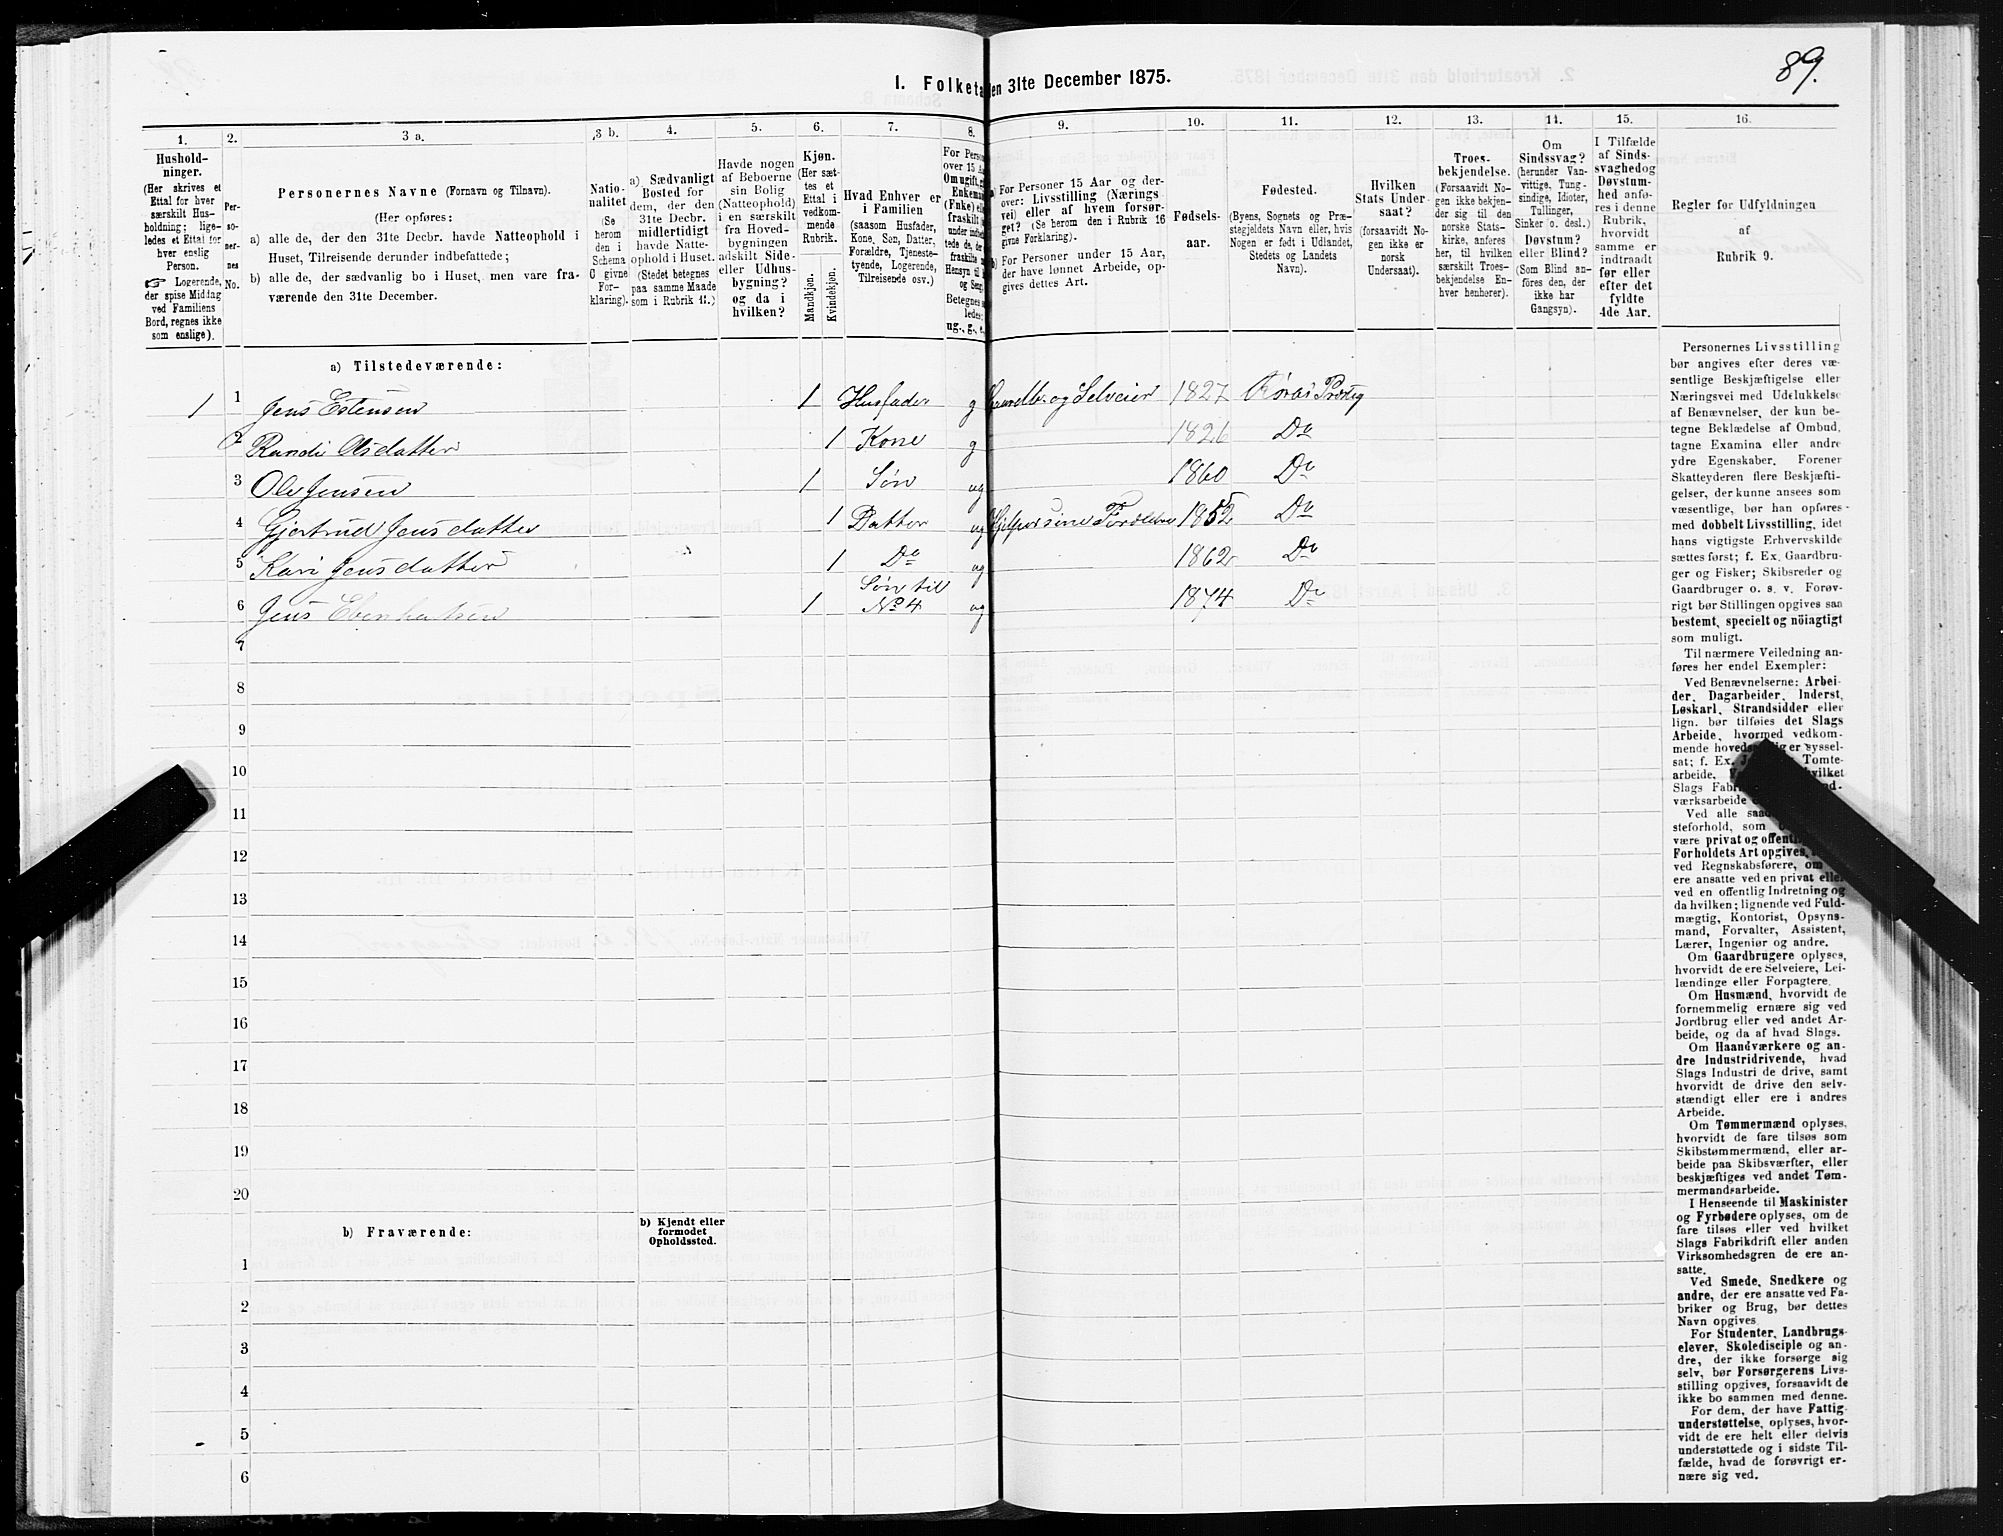 89.
I. Folketa en 31te December 1875.
1. 2. 3 a. 3 b. 4. 5. 6. 7. 8. 9. 10. 11. 12. 13. 14. 15. 16.
Hushold-
ninger.
(Her skrives et
Ettal for hver
særskilt Hus-
holdning; lige-
ledes et Ettal for
hver enslig
Person.
☞ Logerende,
der spise Middag
ved Familiens
Bord, regnes ikke
som enslige).
Per-
so-
ner-
nes
No.
Personernes Navne (Fornavn og Tilnavn).
(Her opføres:
a) alle de, der den 31te Decbr. havde Natteophold i
Huset, Tilreisende derunder indbefattede;
b) alle de, der sædvanlig bo i Huset, men vare fra-
værende den 31te December.
Natio-
nalitet
(Se
herom
den i
Schema
C givne
For-
klaring).
a) Sædvanligt
Bosted for
dem, der den
31te Decbr.
midlertidigt
havde Natte-
ophold i Huset.
(Stedet betegnes
paa samme Maade
som i Rubrik 11.)
Havde nogen
af Beboerne
sin Bolig
(Natteophold)
i en særskilt
fra Hoved-
bygningen
adskilt Side-
eller Udhus-
bygning?
og da i
hvilken?
Kjøn.
(Her sæt-
tes et
Ettal i
vedkom-
mende
Rubrik.
Mandkjøn.
Kvindekjøn.
Hvad Enhver er
i Familien
(saasom Husfader,
Kone, Søn, Datter,
Forældre, Tjeneste-
tyende, Logerende,
Tilreisende osv.)
For Person
over 15 Aa
Om ugift, g
Enkeman
(Enke) ell
fraskilt
under indbefat-
tede de, der
fraskilte
Hensyn til
og Seng.
Betegnes s
ledes:
ug., g., e.,
a) For Personer 15 Aar og der-
over: Livsstilling (Nærings
vei) eller af hvem forsør-
get? (Se herom den i Rubrik 16
givne Forklaring).
b) For Personer under 15 Aar,
der have lønnet Arbeide, op-
gives dettes Art.
Fødsels-
aar.
Fødested.
(Byens, Sognets og Præ-
stegjeldets Navn eller, hvis
Nogen er født i Udlandet,
Stedets og Landets
Navn).
Hvilken
Stats Under-
saat?
(forsaavidt No-
gen ikke er
norsk
Undersaat).
Troes-
bekjendelse.
(Forsaavidt No-
gen ikke bekjen-
der sig til den
norske Stats-
kirke, anføres
her, til hvilken
særskilt Troes-
bekjendelse En-
hver henhører).
Om
Sindssvag?
(herunder Van-
vittige, Tung-
sindige, Idioter,
Tullinger,
Sinker o. desl.)
Døvstum?
eller Blind?
(Som Blind an-
føres den, der
ikke har
Gangsyn).
I Tilfælde
af Sinds-
svaghed og
Døvstum-
hed anfø-
res i denne
Rubrik,
hvorvidt
samme er
indtraadt
før eller
efter det
fyldte
4de Aar.
Regler før Udfyldningen
af
Rubrik 9.
a) Tilstedeværende:
1 1 Jens Estensen 1 Husfader g Gaardb. og Selveier 1827 Røraas Prstg
2 Randi Olsdatter 1 Kone g 1826 Do
3 Ole Jensen 1 Søn ug 1860 Do
4 Gjertrud Jensdatter 1 Datter ug Hjelper sine Forældre 1852 Do
5 Kari Jensdatter 1 Do ug 1862 Do
6 Jens 1 Søn til No 4 ug 1874 Do
7
8
9
10
11
12
13
14
15
16
17
18
19
20
b) Fraværende:
b) Kjendt eller
formodet
Opholdssted.
1
2
3
4
5
6
Personernes Livsstilling
bør angives efter deres væ-
sentlige Beskjæftigelse eller
Næringsvei med Udelukkelse
af Benævnelser, der kun be-
tegne Beklædelse af Ombud,
tagne Examina eller andre
ydre Egenskaber. Forener
Skatteyderen flere Beskjæfti-
gelser, der kunne ansees som
væsentlige, bør han opføres
med dobbelt Livsstilling, idet
hans vigtigste Erhvervskilde
sættes først; f. Ex. Gaardbru-
ger og Fisker; Skibsreder og
Gaardbruger o. s. v. Forøv-
rigt bør Stillingen opgives saa
bestemt, specielt og nøiagtigt
som muligt.
Til nærmere Veiledning an-
føres her endel Exempler:
Ved Benævnelserne: Arbei-
der, Dagarbeider, Inderst,
Løskarl, Strandsidder eller
lign. bør tilføies det Slags
Arbeide, hvormed vedkom-
mende hoveds er syssel-
sat; f. Ex. Tomte-
arbeide, hvilket
Slags Fabri
værksarbeide
Ved alle saad
steforhold, som
være privat og offent
Forholdets Art opgives,
ved Regnskabsførere, om
ere ansatte ved en privat eller
ved en offentlig Indretning og
da hvilken; lignende ved Fuld-
mægtig, Kontorist, Opsyns-
mand, Forvalter, Assistent,
Lærer, Ingeniør og andre.
Om Gaardbrugere oplyses,
hvorvidt de ere Selveiere, Lei-
lændinge eller Forpagtere.
Om Husmænd, hvorvidt de
fornemmelig ernære sig ved
Jordbrug eller ved andet Ar-
beide, og da af hvad Slags.
Om Haandværkere og an-
dre Industridrivende, hvad
Slags Industri de drive, samt
hvorvidt de drive den selv-
stændigt eller ere i andres
Arbeide.
Om Tømmermænd oplyses,
hvorvidt de fare tilsøs som
Skibstømmermænd, eller ar-
beide paa Skibsværfter, eller
beskjæftiges ved andet Tøm-
mermandsarbeide.
I Henseende til Maskinister
og Fyrbødere oplyses, om de
fare tilsøs eller ved hvilket
Slags Fabrikdrift eller anden
Virksomhedsgren de ere an-
satte.
Ved Smede, Snedkere og
andre, der ere ansatte ved Fa-
briker og Brug, bør dettes
Navn opgives
For Studenter, Landbrugs-
elever, Skoledisciple og an-
dre, der ikke forsørge sig
selv, bør Forsørgerens Livs-
stilling opgives, forsaavidt de
ikke bo sammen med denne.
For dem, der have Fattig-
understøttelse, oplyses, hvor-
vidt de ere helt eller delvis
understøttede og i sidste Til-
fælde, hvad de forøvrigt er-
nære sig ved.